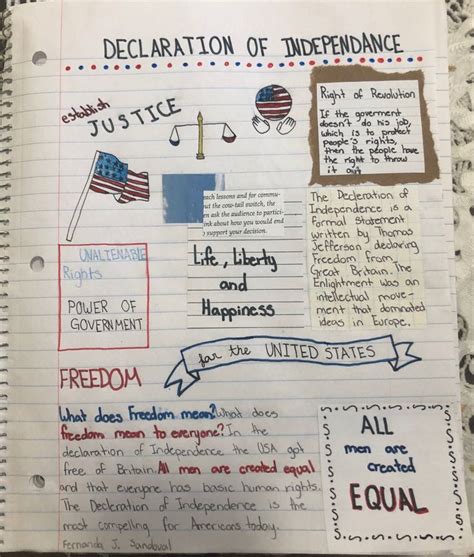 DECLARATION OF INDEPENDANCE
establish
JUSTICE
Right of Revolution
If the goverment
doesn't do his job,
which is to protect
people's rights,
then the people have
the right to throw
it out
each lessons and for commu-
out the cow-tail switch, the
en ask the audience to partici-
ink about how you would end
o support your decision.
The Declaration of
Independence is a
formal statement
written by Thomas
Jefferson declaring
freedom from
Great Britain. The
Enlightment was an
intellectual move-
ment that dominated
ideas in Europe.
UNALIENABLE
Rights
POWER OF
GOVERNMENT
Life, Liberty
and
Happiness
for the UNITED STATES
FREEDOM
What does Freedom mean? What does
freedom mean to everyone? In the
declaration of Independence the USA got
free of Britain. All men are created equal
and that everyone has basic human rights.
The Declaration of Independence is the
most compelling for Americans today.
Fernanda J. Sandoval
ALL
men are
created
EQUAL